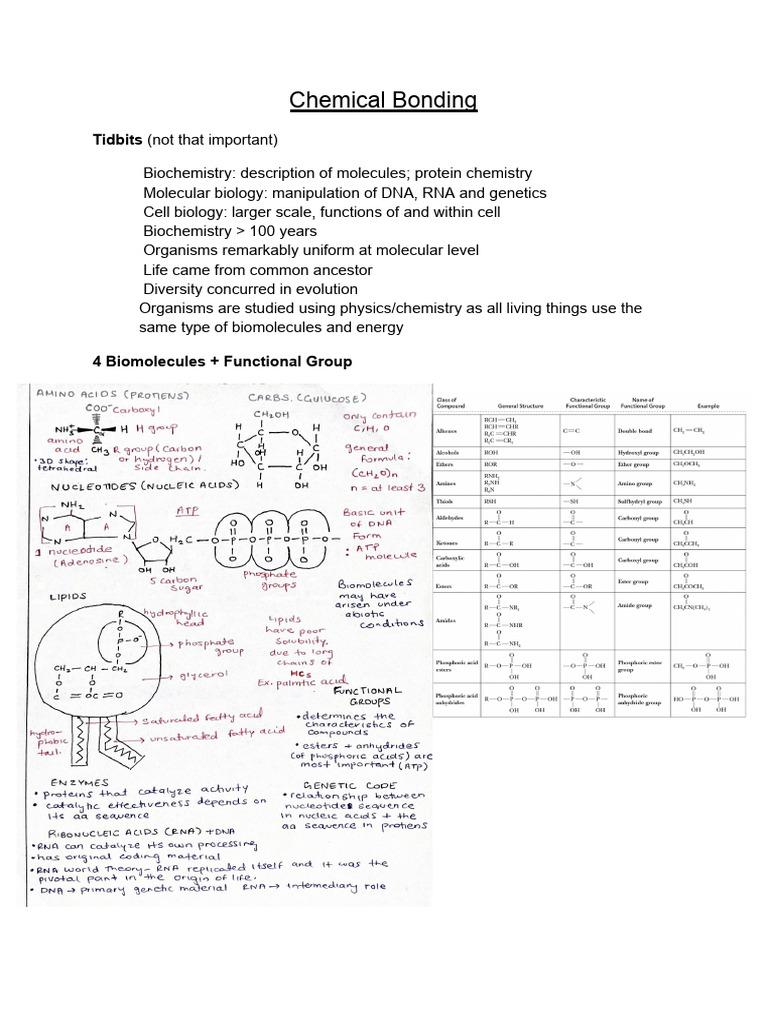 Chemical Bonding
Tidbits (not that important)
Biochemistry: description of molecules; protein chemistry
Molecular biology: manipulation of DNA, RNA and genetics
Cell biology: larger scale, functions of and within cell
Biochemistry > 100 years
Organisms remarkably uniform at molecular level
Life came from common ancestor
Diversity concurred in evolution
Organisms are studied using physics/chemistry as all living things use the
same type of biomolecules and energy
4 Biomolecules + Functional Group
AMINO ACIDS (PROTIENS)
COO⁻ Carboxyl
NH₃ C H H group
amino
acid CH₃ R group (Carbon
or hydrogen) /
Side chain.
• 3D shape:
tetrahedral
CARBS. (GULUCOSE)
CH₂OH
H C O H
C H C
OH H
HO C C OH
H OH
only contain
C, H, O
general
Formula:
(CH₂O)n
n = at least 3
NUCLEOTIDES (NUCLEIC ACIDS)
NH₂
N A A N
N N
1 nucleotide
(Adenosine)
ATP
O H₂C — O — P — O — P — O — P — O —
O O O
O O O
OH OH
5 carbon
sugar
phosphate
groups
Basic unit
of DNA
Form
: ATP
molecule
Biomolecules
may have
arisen under
abiotic
conditions
LIPIDS
hydrophyllic
head
R
O
O P O⁻
O
phosphate
group
CH₂ — CH — CH₂
O O
C OC = O
glycerol
Saturated fatty acid
unsaturated fatty acid
hydro-
phobic
tail.
Lipids
have poor
Solubility,
due to long
chains of
HCs
Ex. palmtic acid
FUNCTIONAL
GROUPS
• determines the
characteristics of
compounds
• esters + anhydrides
(of phosphoric acids) are
most important (ATP)
ENZYMES
• proteins that catalyze activity
• catalytic effectiveness depends on
its aa sequence
GENETIC CODE
• relationship between
nucleotides sequence
in nucleic acids + the
aa sequence in protiens
RIBONUCLEIC ACIDS (RNA) + DNA
• RNA can catalyze its own processing
• has original coding material
• RNA World Theory — RNA replicated itself and it was the
pivotal part in the origin of life.
• DNA → primary genetic material RNA → intermediary role
Class of Compound General Structure Characteristic Functional Group Name of Functional Group Example
Alkenes RCH=CH₂ C=C Double bond CH₂=CH₂
RCH=CHR
R₂C=CHR
R₂C=CR₂
Alcohols ROH —OH Hydroxyl group CH₃CH₂OH
Ethers ROR —O— Ether group CH₃OCH₃
Amines RNH₂ N Amino group CH₃NH₂
R₂NH
R₃N
Thiols RSH —SH Sulfhydryl group CH₃SH
Aldehydes R—C—H —C— Carbonyl group CH₃CH
O O O
Ketones R—C—R —C— Carbonyl group CH₃CCH₃
O O O
Carboxylic acids R—C—OH —C—OH Carboxyl group CH₃COH
O O O
Esters R—C—OR —C—OR Ester group CH₃COCH₃
O O O
Amides R—C—NR₂ —C—N Amide group CH₃CN(CH₃)₂
R—C—NHR
R—C—NH₂
Phosphoric acid esters R—O—P—OH —O—P—OH Phosphoric ester group CH₃—O—P—OH
OH OH OH
Phosphoric acid anhydrides R—O—P—O—P—OH —P—O—P— Phosphoric anhydride group HO—P—O—P—OH
OH OH OH OH OH OH